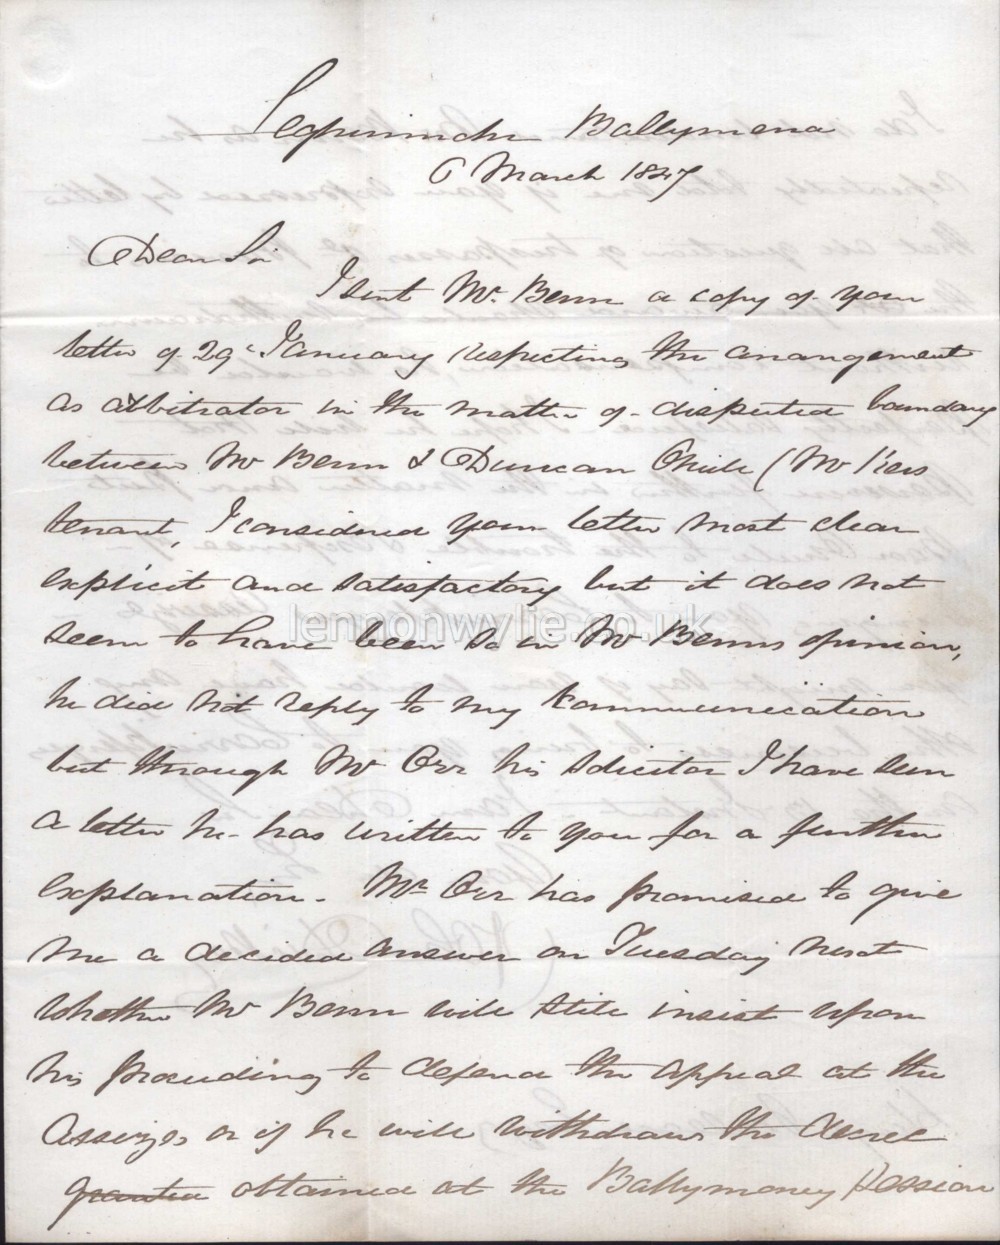 Ballymena
6 March 1847
Dear Sir
I sent Mr. Benn a copy of your
letter of 29 January respecting the arrangement
as arbitrator in the matter of disputed boundary
between Mr Benn & Duncan (Mr
tenant, I considered your letter most clear
explicit and satisfactory but it does not
seem to have been so in Mr Benns opinion,
he did not reply to my communication
but through Mr Orr his solicitor I have seen
a letter he has written to you for a further
explanation. Mr Orr has promised to give
me a decided answer on Tuesday next
whether Mr Benn will still insist upon
his proceeding to defend the appeal at the
Assizes or if he will withdraw the decree
granted obtained at the Ballymoney Session
lennonwylie.co.uk